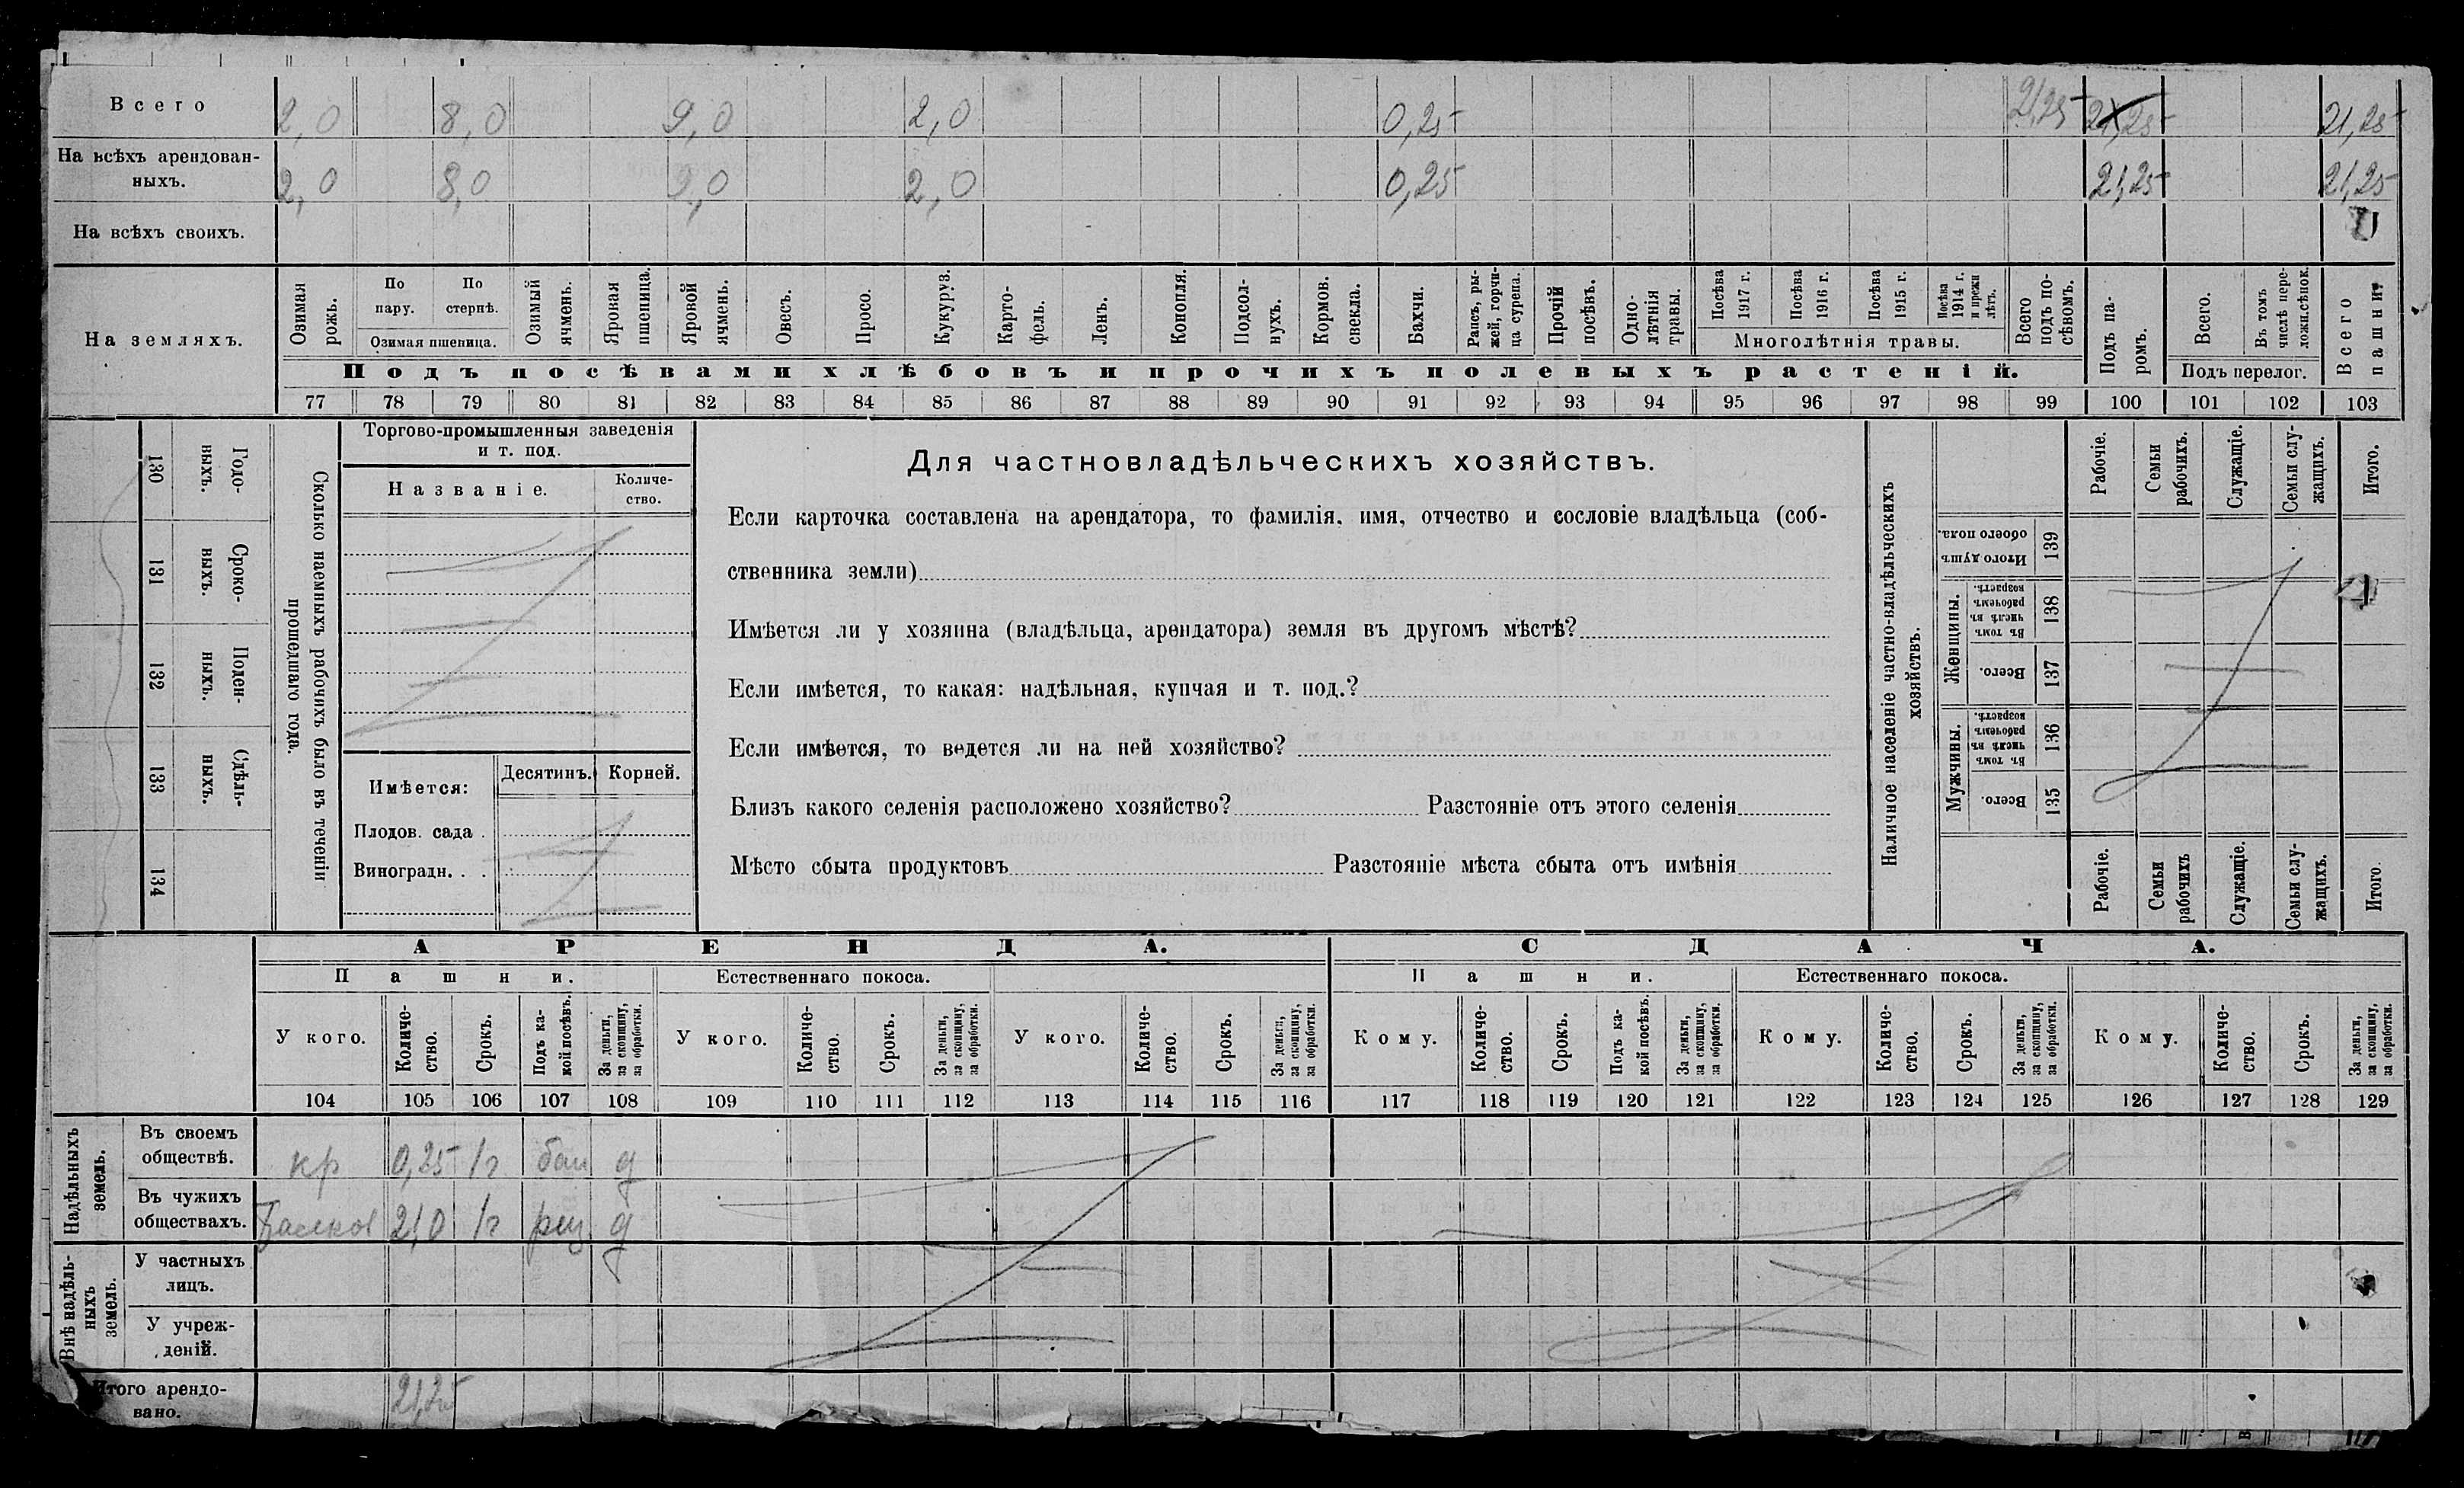 Всего 2,0 8,0 9,0 2,0 0,25 21,25 21,25 21,25
На всѣхъ арендован-
ныхъ. 2,0 8,0 9,0 2,0 0,25 21,25 21,25
На всѣхъ своихъ.
На земляхъ.
Озимая рожь.
По пару.
По стернѣ.
Озимая пшеница.
Озимый ячмень.
Яровая пшеница.
Яровой ячмень.
Овесъ.
Просо.
Кукуруз.
Карто-
фель.
Ленъ.
Конопля.
Подсол-
нухъ.
Кормов. свекла.
Бахчи.
Рапсъ, ры-
жей, горчи-
ца сурепа.
Прочій посѣвъ.
Одно-
лѣтнія травы.
Посѣва 1917 г.
Посѣва 1916 г.
Посѣва 1915 г.
Посѣва 1914 г. и прежн лѣтъ.
Многолѣтнія травы.
Всего подъ по-
сѣвомъ.
Подъ посѣвами хлѣбовъ и прочихъ полевыхъ растеній.
Подъ па-
ромъ.
Всего.
Въ томъ числѣ пере-
ложн.сѣнок.
Подъ перелог.
Всего пашни
77 78 79 80 81 82 83 84 85 86 87 88 89 90 91 92 93 94 95 96 97 98 99 100 101 102 103
Сколько наемныхъ рабочихъ было въ теченіи
прошедшаго года.
Годо-
выхъ.
130
Сроко-
выхъ.
131
Поден-
ныхъ.
132
Сдѣль-
ныхъ.
133
134
Торгово-промышленныя заведенія
и т. под.
Названіе.
Количе-
ство.
Имѣется:
Десятинъ. Корней.
Плодов. сада .
Виноградн. . .
Для частновладѣльческихъ хозяйствъ.
Если карточка составлена на арендатора, то фамилія, имя, отчество и сословіе владѣльца (соб-
ственника земли)
Имѣется ли у хозяина (владѣльца, арендатора) земля въ другомъ мѣстѣ?
Если имѣется, то какая: надѣльная, купчая и т. под.?
Если имѣется, то ведется ли на ней хозяйство?
Близъ какого селенія расположено хозяйство? Разстояніе отъ этого селенія
Мѣсто сбыта продуктовъ Разстояніе мѣста сбыта отъ имѣнія
Наличное населеніе частно-владѣльческихъ
хозяйствъ.
Рабочіе.
Семьи рабочихъ.
Служащіе.
Семьи слу-
жащихъ.
Итого.
Итого душъ обоего пола.
139
Женщины.
Въ томъ числѣ въ рабочемъ возрастѣ.
138
Всего.
137
Мужчины.
Въ томъ числѣ въ рабочемъ возрастѣ.
136
Всего.
135
Рабочіе.
Семьи рабочихъ
Служащіе.
Семьи слу-
жащихъ.
Итого
АРЕНДА. СДАЧА.
Пашни. Естественнаго покоса. Пашни. Естественнаго покоса.
У кого.
Количе-
ство.
Срокъ.
Подъ ка-
кой посѣвъ.
За деньги, за скопщину, за обработки.
У кого.
Количе-
ство.
Срокъ.
За деньги, за скопщину, за обработки.
У кого.
Количе-
ство.
Срокъ.
За деньги, за скопщину, за обработки.
Кому.
Количе-
ство.
Срокъ.
Подъ ка-
кой посѣвъ.
За деньги, за скопщину, за обработки.
Кому.
Количе-
ство.
Срокъ.
За деньги, за скопщину, за обработки.
Кому.
Количе-
ство.
Срокъ.
За деньги, за скопщину, за обработки.
104 105 106 107 108 109 110 111 112 113 114 115 116 117 118 119 120 121 122 123 124 125 126 127 128 129
Надѣльныхъ земель.
Въ своемъ
обществѣ. кр 0,25 1г д
Въ чужихъ
обществахъ. 21,0 1г д
Внѣ надѣль-
ныхъ земель.
У частныхъ
лицъ.
У учреж-
деній.
Итого арендо-
вано. 21,25